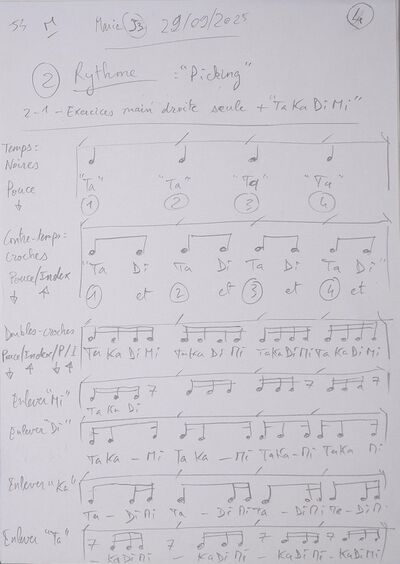 29/09/2025
4a
2 Rythme : "Picking"
2-1 - Exercices main droite seule + "Ta Ka Di Mi"
Temps =
Noires
Pouce
"Ta" "Ta" "Ta" "Ta"
1 2 3 4
Contre-temps =
Croches
Pouce/Index
"Ta Di Ta Di Ta Di Ta Di"
1 et 2 et 3 et 4 et
Doubles-croches
Pouce/Index/P/I
Ta Ka Di Mi Ta Ka Di Mi Ta Ka Di Mi Ta Ka Di Mi
Enlever "Mi"
Ta Ka Di
Enlever "Di"
Ta Ka - Mi Ta Ka - Mi Ta Ka - Mi Ta Ka Mi
Enlever "Ka"
Ta - Di Mi Ta - Di Mi Ta - Di Mi Ta - Di Mi
Enlever "Ta"
- Ka Di Mi - Ka Di Mi - Ka Di Mi - Ka Di Mi